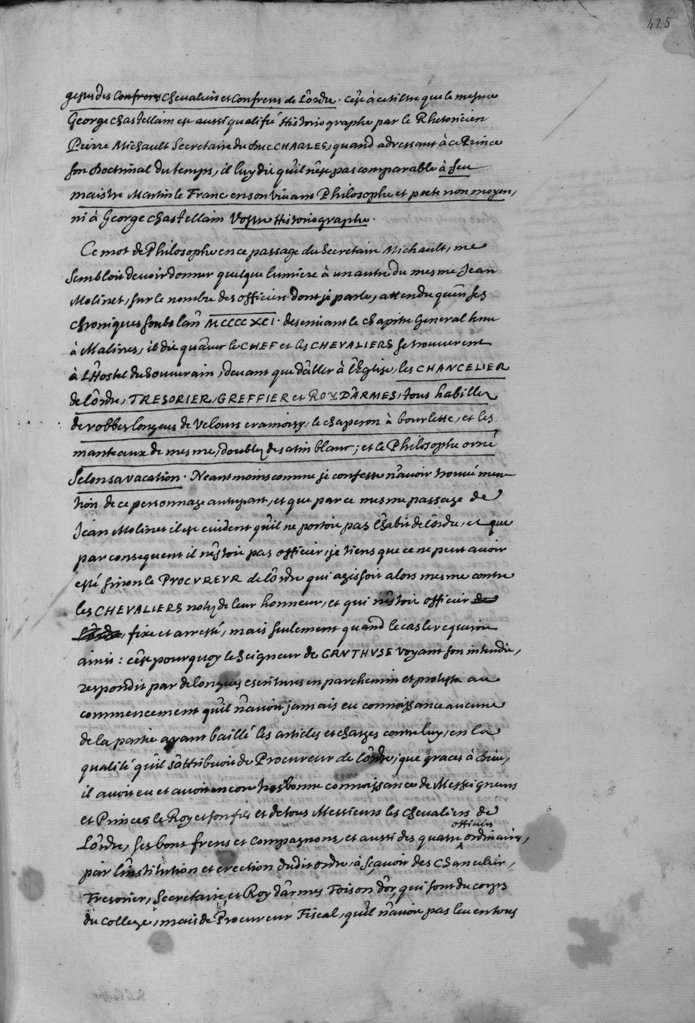 425
gestes des Confreres Chevaliers et Confreres de l'ordre. c'est à ce tiltre que le mesme
George Chastellain est aussi qualifié Historiographe par le Rhetoricien
Pierre Michault Secretaire du Duc CHARLES, quand adressant à ce Prince
son Doctrinal du temps, il luy dit qu'il n'est pas comparable à feu
maistre Martin le Franc en son vivant Philosophe et poete non moyen,
ni à George Chastellain Vostre Historiographe.
Ce mot de Philosophe en ce passage du Secretaire Michault, me
sembloit devoir donner quelque lumiere à un autre du mesme Jean
Molinet, sur le nombre des officiers dont je parle, attendu qu'en ses
chroniques soubs l'an MCCCCXCI. descrivant le chapitre General tenu
à Malines, il dit qu'avec le CHEF et les CHEVALIERS se trouverent
à l'Hostel du Souverain, devant que d'aller à l'Eglise, les CHANCELIER
de l'ordre, TRESORIER, GREFFIER et ROY D'ARMES, tous habillez
de robbes longues de Velours cramoisy, le chaperon à bourlette, et les
manteaux de mesme, doublez de satin blanc; et le Philosophe orné
selon sa vacation. Neantmoins comme je confesse n'avoir trouvé men
tion de ce personnage autrepart, et que par ce mesme passage de
Jean Molinet il est evident qu'il ne portoit pas l'habit de l'ordre, et que
par consequent il n'estoit pas officier, je tiens que ce ne peut avoir
esté sinon le PROCUREUR de l'ordre qui agissoit alors mesme contre
les CHEVALIERS notez de leur honneur, et qui n'estoit officier de
l'ordre, fixe et arresté, mais seulement quand le cas le requeroit
ainsi: c'est pourquoy le Seigneur de GRUTHUSE voyant son intendit,
respondit par de longues escritures en parchemin et protesta au
commencement qu'il n'avoit jamais eu connoissance aucune
de la partie ayant baillé les articles et charges contre luy, en la
qualité qu'il s'attribuoit de Procureur de l'ordre; que graces à Dieu,
il avoit eu et avoit encor tres bonne connoissance de Messeigneurs
et Princes le Roy et son fils et de tous Messieurs les chevaliers de
l'ordre, ses bons freres et Compagnons, et aussi des quatre officiers ordinaires,
par l'institution et erection dudit ordre, à sçavoir des Chancelier,
Tresorier, Secretaire et Roy d'armes Toison d'or, qui sont du corps
du College, mais de Procureur Fiscal, qu'il n'avoit pas leu en tous